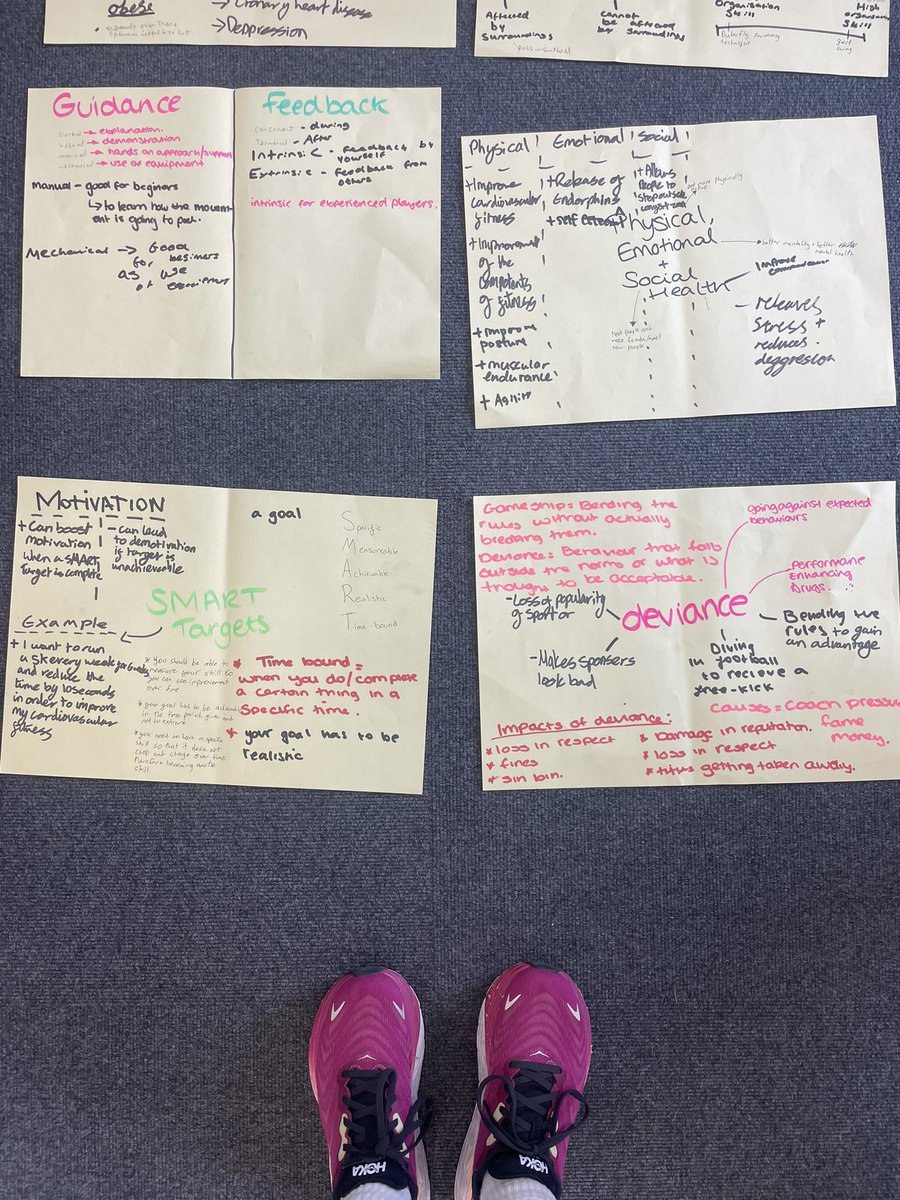 obese
→ Cronary heart disease
→ Deppression
Affected
by
surroundings
cannot
be
by surroundings
Organisation
Skill
High
Skill
Butterfly swimming
technique
golf
swing
Guidance
verbal → explanation.
visual → demonstration
manual → hands on approach/support
mechanical → use of equipment
Manual - good for beginers
↳ to learn how the movem
ent is going to
Mechanical → Good
for beginers
as use
of
Feedback
- during
Terminal - After
Intrinsic - Feedback by
yourself
Extrinsic - feedback from
others
intrinsic for experienced players.
Physical
Emotional
Social
+ Improve
cardiovascular
fitness
+ Improvement
of the
of fitness
+ improve
posture
+ muscular
endurance
+ Agility
+ Release of
Endorphins
+ Self Esteem
+ Allows
people to
Physical,
Emotional
+
Social
Health
→ better mentality + better
mental health
Improve
meet
new people.
- releaves
stress +
reduces
aggression
MOTIVATION
+ Can boost
motivation
when a SMART
Target is complete
- can lead
to demotivation
if target is
unachievable
a goal
Specific
Measureable
Achievable
Realistic
Time-bound
SMART
Targets
Example
+ I want to run
a 5k every week for 6 weeks
and reduce the
time by 10seconds
in order to improve
my cardiovascular
fitness
* you should be able to
measure your skill so
you can see improvement
over time
* your goal has to be
in the time period given and
not to extreme
* you need to have a specific
skill so that it dose not
chop and change over time
therefore becoming
skill
* Time bound =
when you do/complete
a certain thing in a
specific time.
* your goal has to be
realistic
Gameship = Bending the
rules without actually
breaking them.
Deviance = Behaviour that falls
outside the norms or what is
thought to be acceptable.
going against expected
behaviours
Performane
Enhancing
Drugs
- Loss of popularity
of sport or
deviance
- Bending the
rules to gain
an advantage
- Makes sponsers
look bad
Diving
in football
to recieve a
free-kick
causes = Coach pressure
fame
money.
Impacts of deviance:
* loss in respect
* fines
* sin bin.
* Damage in reputation.
* loss in respect
* titles getting taken away.
HOKA
HOKA